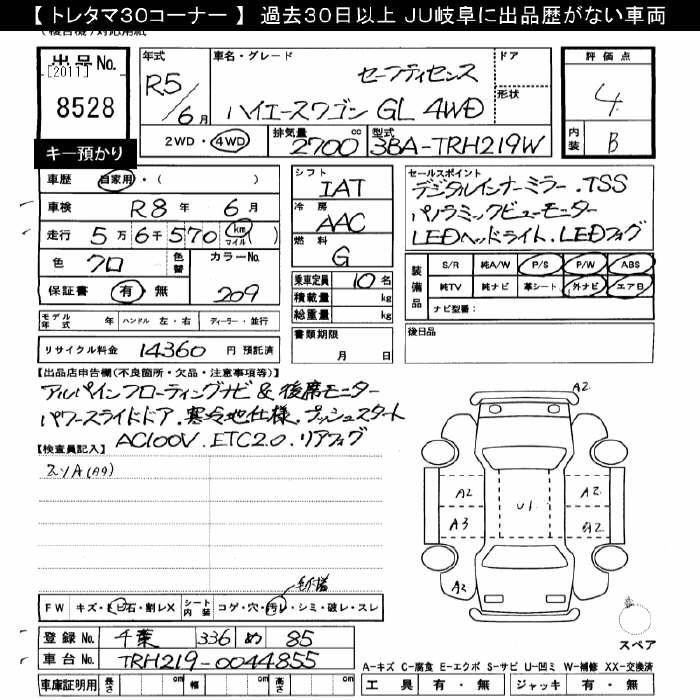 【 トレタマ30コーナー 】 過去30日以上 JU岐阜に出品歴がない車両
出品No.
[2011]
8528
キー預かり
年式
R5/6月
車名・グレード
セーフティセンス
ハイエースワゴン GL 4WD
ドア
形状
評価点
4
内装
B
2WD・4WD
排気量
2700cc
型式
3BA-TRH219W
車歴 自家用・( )
車検 R8年 6月
走行 5万6千570 (km マイル)
色 クロ 色替 カラーNo.
保証書 有・無 209
シフト
IAT
冷房
AAC
燃料
G
乗車定員 10名
積載量 kg
総重量 kg
セールスポイント
デジタルインナーミラー.TSS
パノラミックビューモニター
LEDヘッドライト.LEDフォグ
装備品
S/R 純A/W P/S P/W ABS
純TV 純ナビ 革シート 外ナビ エアB
ナビ型番:
モデル年式 年 ハンドル 左・右 ディーラー・並行
書類期限
月 日
後日品
リサイクル料金 14360 円 預託済
【出品店申告欄(不良箇所・欠品・注意事項等)】
アルパインフローティングナビ & 後席モニター
パワースライドドア.寒冷地仕様.プッシュスタート
AC100V.ETC2.0.リアフォグ
【検査員記入】
スリA(A9)
A2
A2
A2
U1
A3
A2
FW キズ・トビ石・割レX シート内装 コゲ・穴・汚レ・シミ・破レ・スレ
スペア
登録No. 千葉 336 め 85
車台No. TRH219-0044855
A-キズ C-腐食 E-エクボ S-サビ U-凹ミ W-補修 XX-交換済
車庫証明用 長さ cm 幅 cm 高さ cm
工具 有・無 ジャッキ 有・無